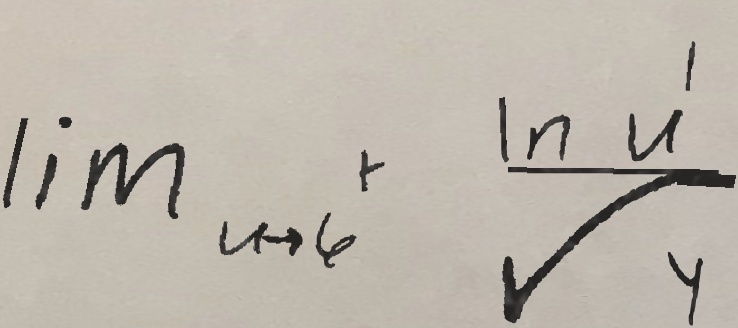 lim_{u→6^+} \frac{\ln u^1}{\sqrt{y}}